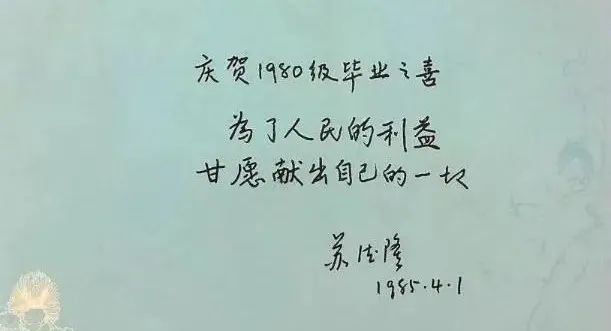 庆贺1980级毕业之喜
為了人民的利益
甘愿献出自己的一切
苏德隆
1985.4.1